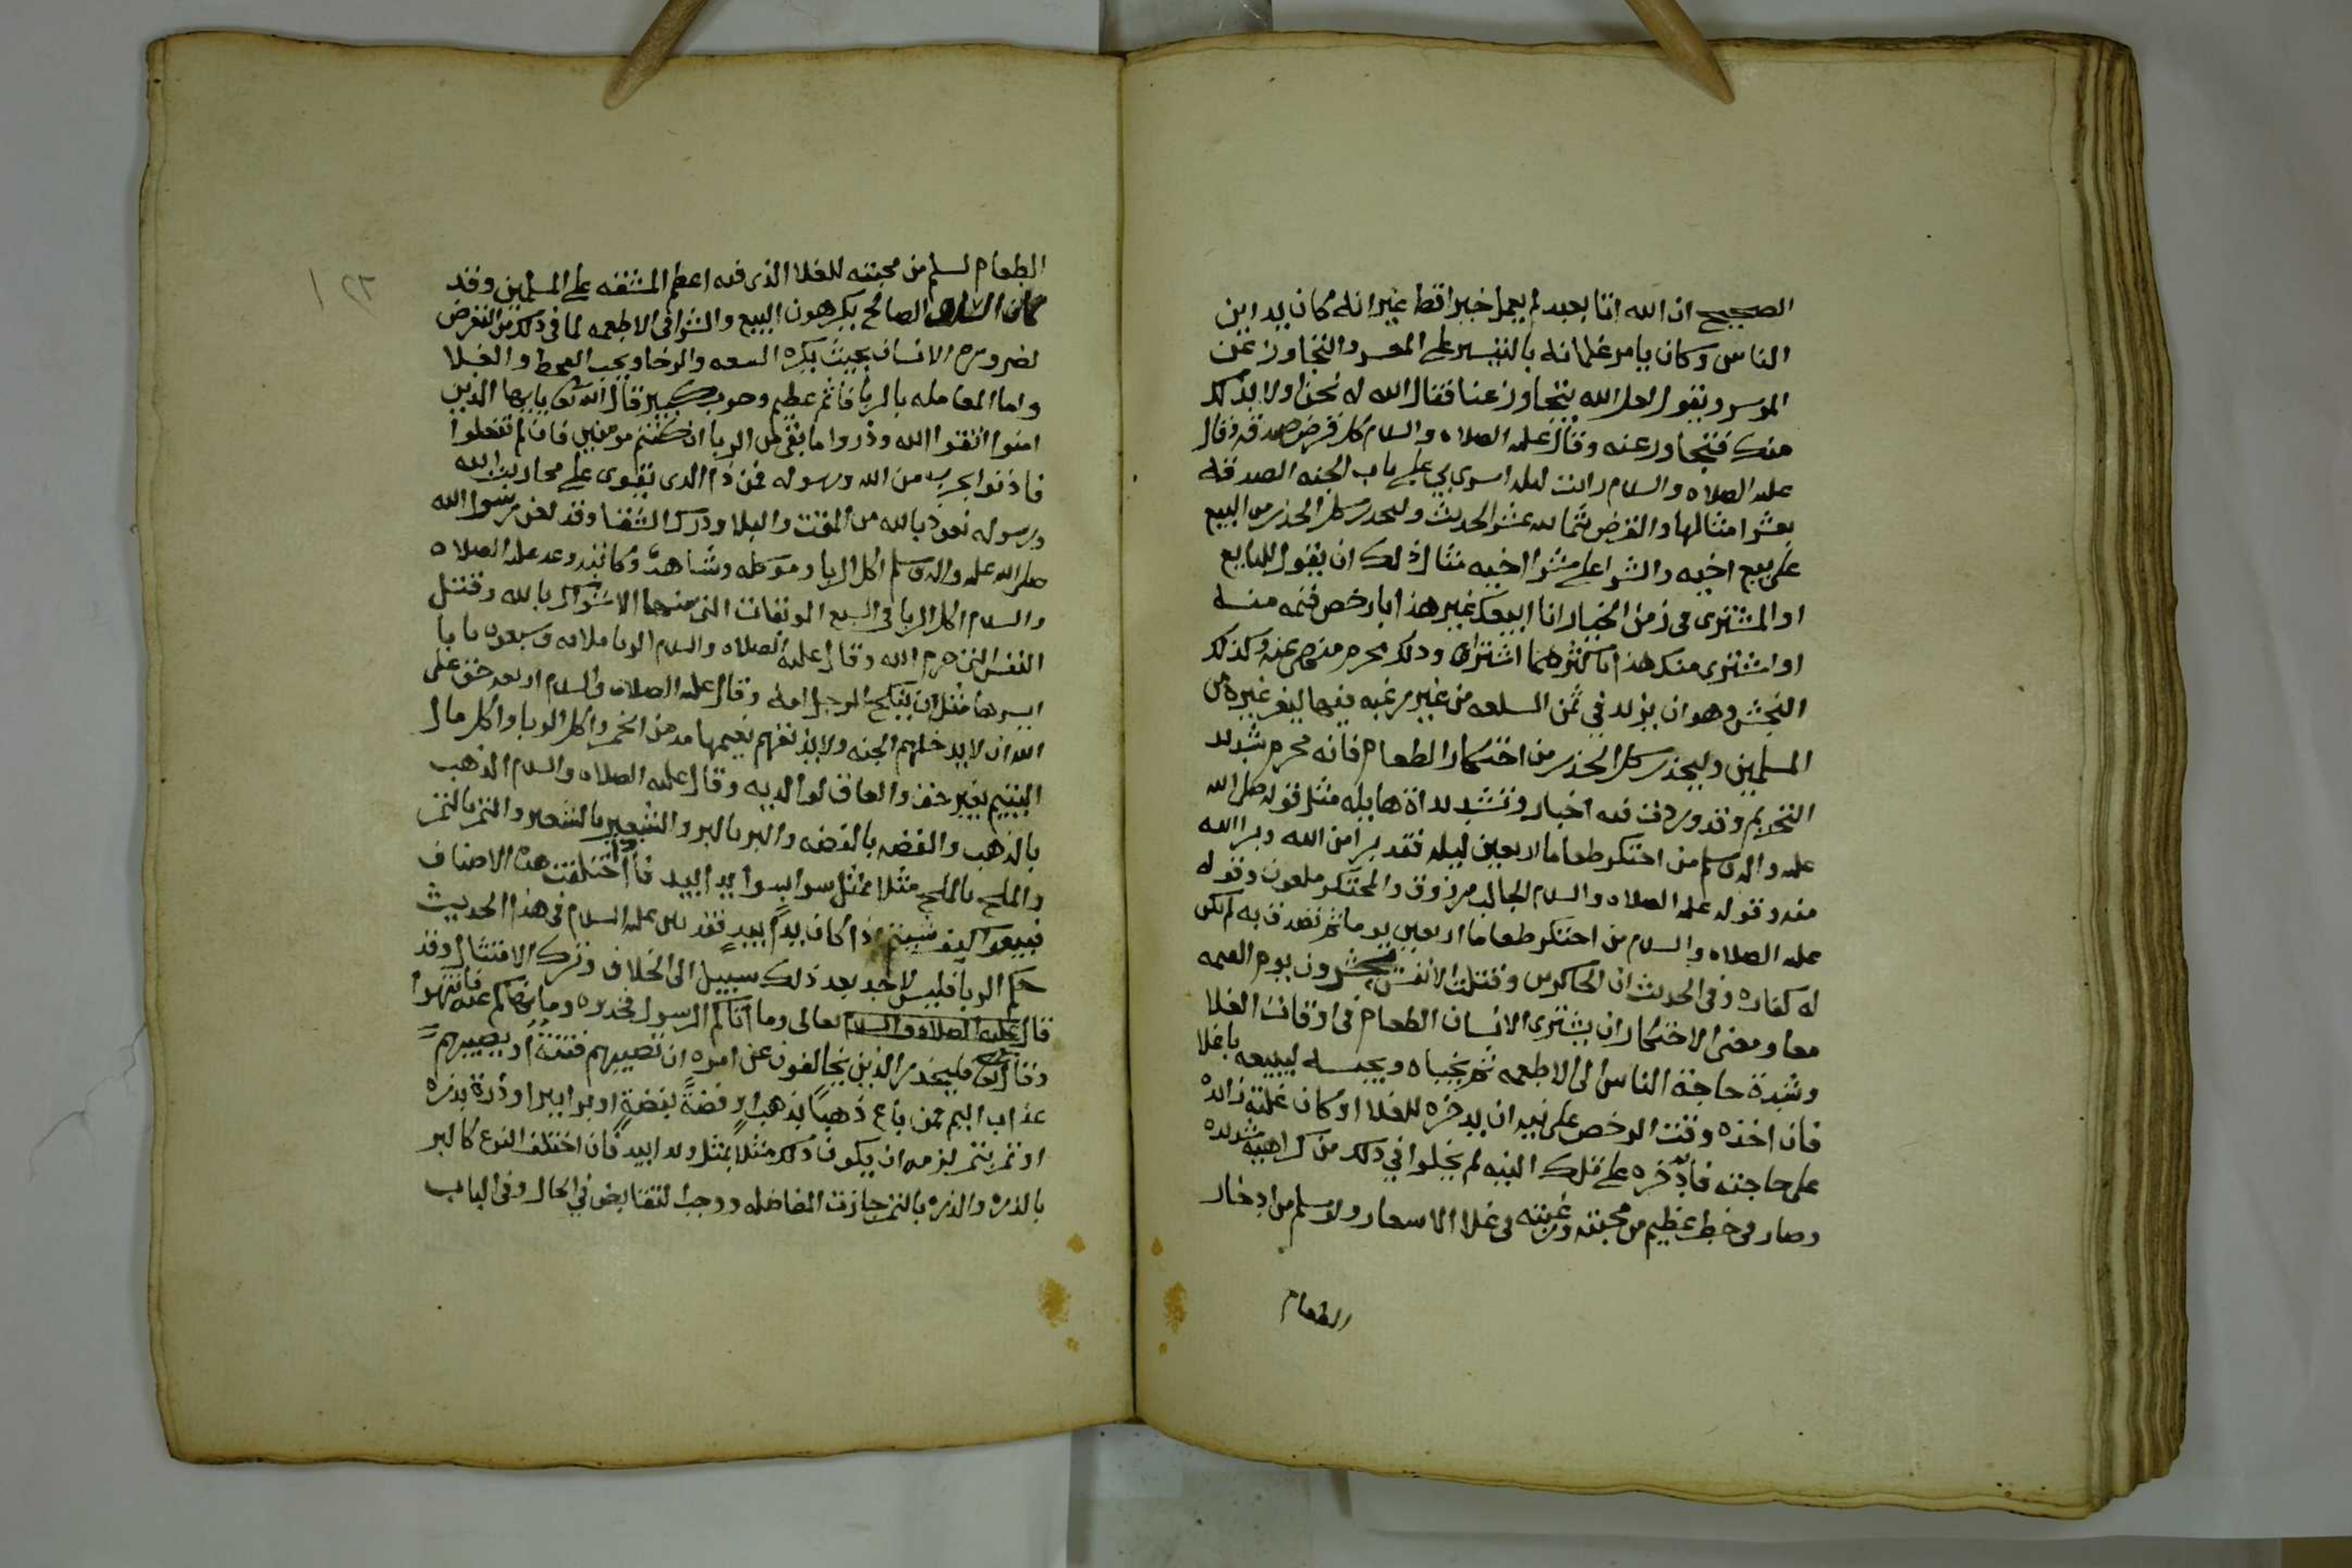 الصحيح ان الله اتا بعبد لم يعمل خيرا قط غير انه كان يداين
الناس وكان يامر غلمانه بالتيسير على المعسر والتجاوز عن
الموسر ويقول لعل الله يتجاوز عنا فقال الله له نحن اولا بذلك
منك فتجاوز عنه وقال عليه الصلاه والسلام كل قرض صدقه وقال
عليه الصلاه والسلام رايت ليله اسرى بي على باب الجنه الصدقه
بعشر امثالها والقرض بثمانيه عشر الحديث وليحذر كل الحذر من البيع
على بيع اخيه والشرا على شرا اخيه مثال ذلك ان يقول للبايع
او المشترى في زمن الخيار انا ابيعك غير هذا بارخص قيمه منه
او اشترى منك هذا باكثر مما اشتراه وذلك محرم منهي عنه وكذلك
النجش وهو ان يزيد في ثمن السلعه من غير رغبه فيها ليغر غيره من
المسلمين وليحذر كل الحذر من احتكار الطعام فانه محرم شديد
التحريم وقد وردت فيه اخبار وتشديدات هايله مثل قوله صلى الله
عليه واله وسلم من احتكر طعاما اربعين ليله فقد برا من الله وبرا الله
منه وقوله عليه الصلاه والسلام الجالب مرزوق والمحتكر ملعون وقوله
عليه الصلاه والسلام من احتكر طعاما اربعين يوما ثم تصدق به لم تكن
له كفاره وفي الحديث ان الحاكرين وقتلت الانفس يحشرون يوم القيمه
معا ومعنى الاحتكار ان يشترى الانسان الطعام في اوقات الغلا
وشدة حاجة الناس الى الاطعمه ثم يخباه ويحبسه ليبيعه باغلا
فان اخذه وقت الرخص على نيه ان يدخره للغلا او كان غلته زايده
على حاجته فادخره على تلك النيه لم يخلوا في ذلك من كراهيه شديده
وصار في خطر عظيم من محبته ورغبته في غلا الاسعار ولو سلم من ادخار
الطعام
الطعام لسلم من محبته للغلا الذى فيه اعظم المشقه على المسلمين وقد
كان السلف الصالح يكرهون البيع والشرا في الاطعمه لما في ذلك من التعرض
لضرورة الانسان بحيث يكره السعه والرخا ويحب القحط والغلا
واما المعامله بالربا فاثم عظيم وحوب كبير قال الله تعالى يايها الذين
امنوا اتقوا الله وذروا ما بقي من الربا ان كنتم مومنين فان لم تفعلوا
فاذنوا بحرب من الله ورسوله فمن ذا الذى يقوى على محاربة الله
ورسوله نعوذ بالله من المقت والبلا ودرك الشقا وقد لعن رسول الله
صلى الله عليه واله وسلم اكل الربا وموكله وشاهده وكاتبه وعد عليه الصلاه
والسلام اكل الربا في السبع الموبقات التي منها الاشراك بالله وقتل
النفس التي حرم الله وقال عليه الصلاه والسلام الربا ثلاثه وسبعون بابا
ايسرها مثل ان ينكح الرجل امه وقال عليه الصلاه والسلام اربعه حق على
الله ان لا يدخلهم الجنه ولا يذيقهم نعيمها مدمن الخمر واكل الربا واكل مال
اليتيم بغير حق والعاق لوالديه وقال عليه الصلاه والسلام الذهب
بالذهب والفضه بالفضه والبر بالبر والشعير بالشعير والتمر بالتمر
والملح بالملح مثلا بمثل سوا بسوا يدا بيد فاذا اختلفت هذه الاصناف
فبيعوا كيف شيتم اذا كان يدا بيد فقد بين عليه السلام في هذا الحديث
حكم الربا فليس لاحد بعد ذلك سبيل الى الخلاف وترك الامتثال وقد
قال عليه الصلاه والسلام تعالى وما اتاكم الرسول فخذوه وما نهاكم عنه فانتهوا
وقال تعالى فليحذر الذين يخالفون عن امره ان تصيبهم فتنة او يصيبهم
عذاب اليم فمن باع ذهبا بذهب او فضة بفضة او برا ببر او ذرة بذره
او تمر بتمر لزمه ان يكون ذلك مثلا بمثل ويدا بيد فان اختلف النوع كالبر
بالذره والذره بالتمر جازت المفاضله ووجب التقابض في الحال وفي الباب